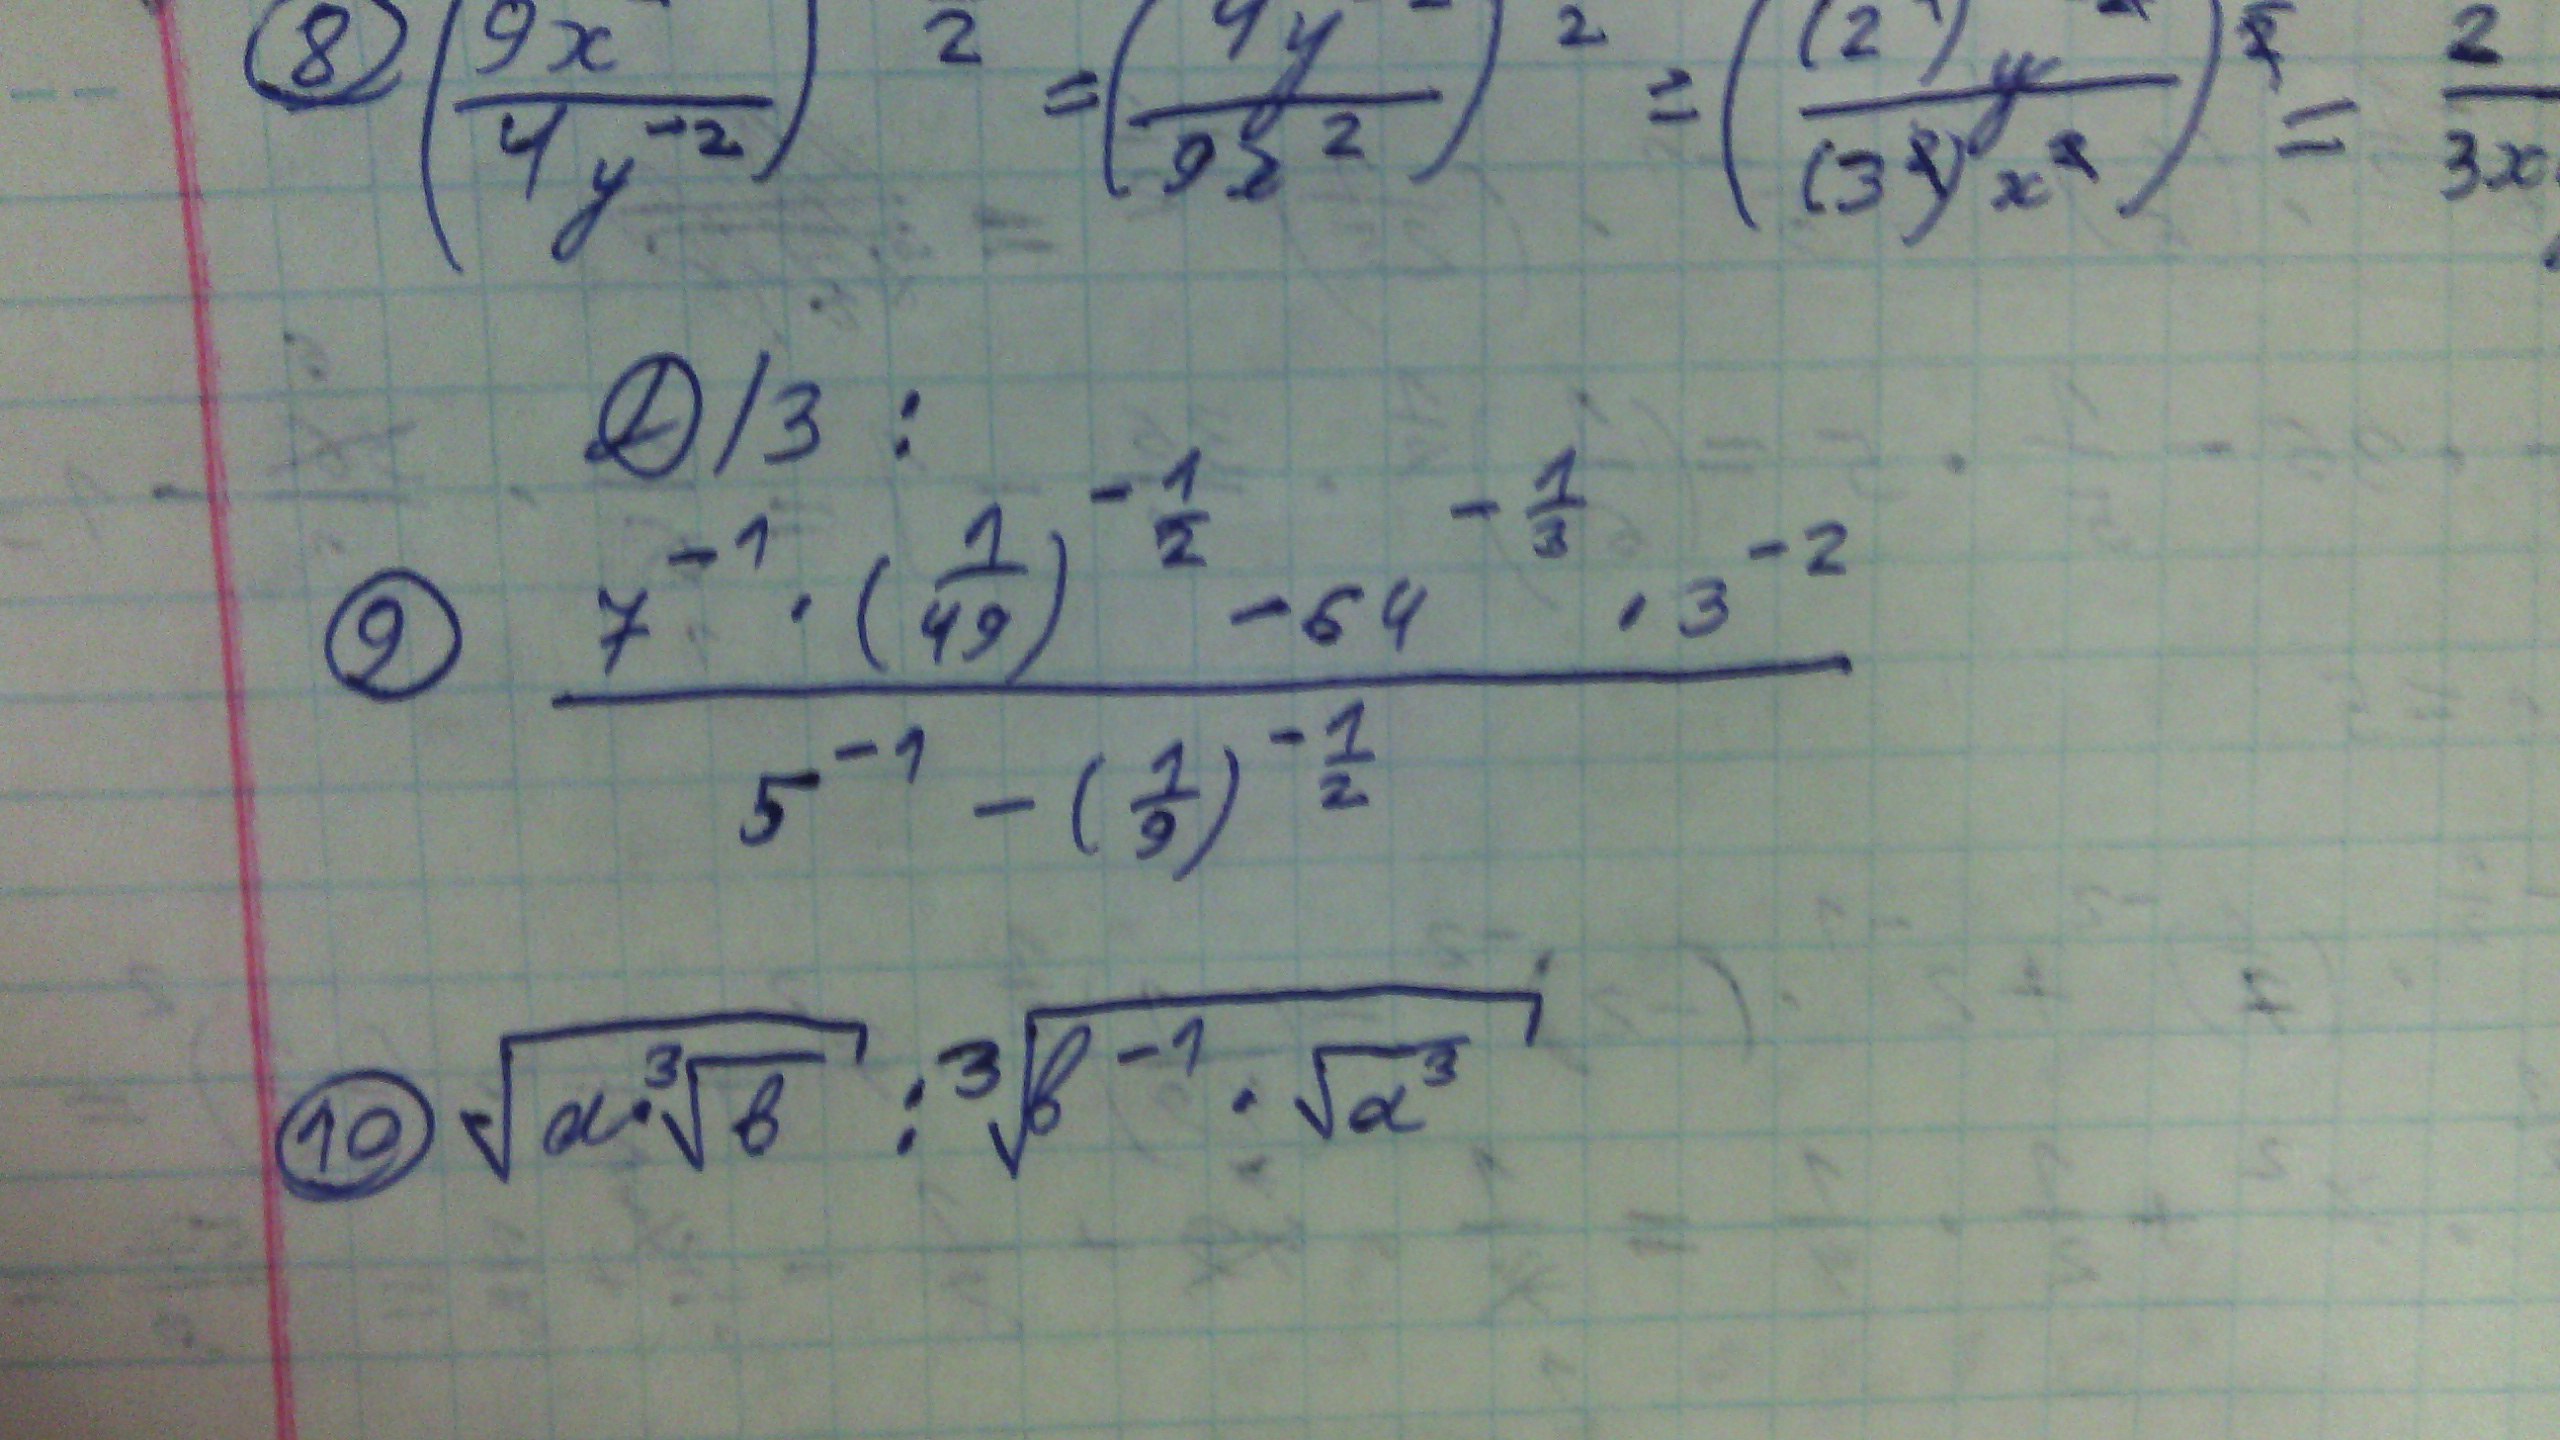 ⑧ (9x / 4y^-2) 2 = (4y / 9x^2) 2 = ((2) y / (3^2) x^2) = 2 / 3x
Д/3 :
⑨ (7^-1 · (1/49)^-1/2 - 64^-1/3 · 3^-2) / (5^-1 - (1/9)^-1/2)
⑩ √(a·³√b) : ³√(b^-1 · √a^3)